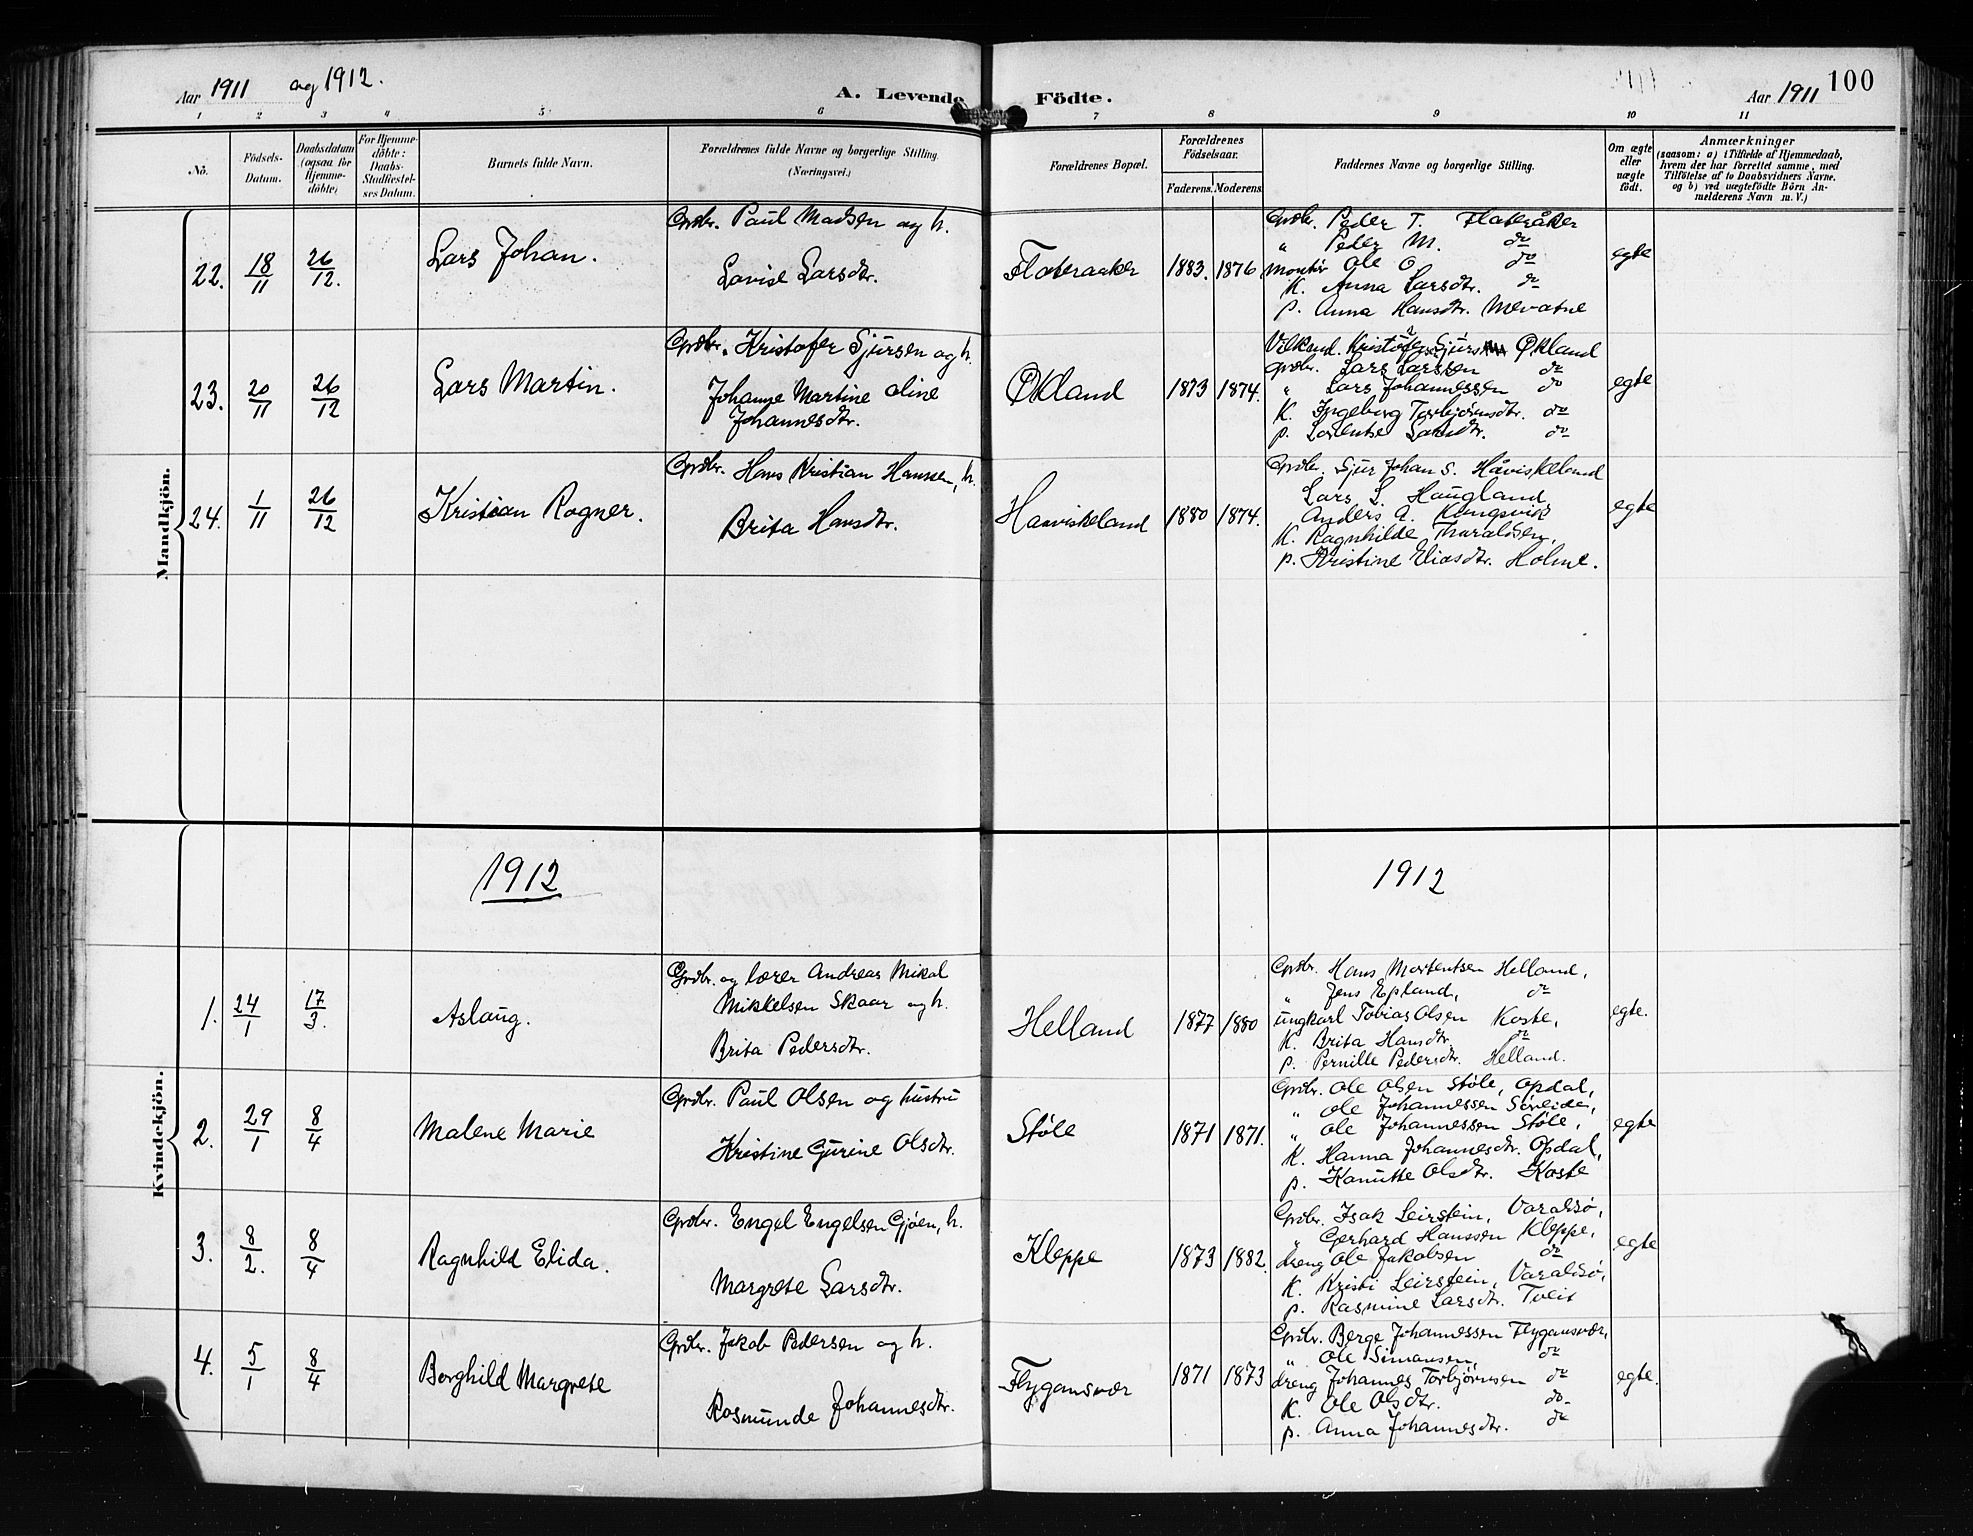 Aar 1911 og 1912.
A. Levende Födte.
Aar 1911 100
1 2 3 4 5 6 7 8 9 10 11
No.
Födsels-
Datum.
Daabsdatum
(ogsaa for
Hjemme-
döbte)
For Hjemme-
döbte:
Daabs-
Stadfæstel-
ses Datum.
Barnets fulde Navn.
Forældrenes fulde Navne og borgerlige Stilling.
(Næringsvei.)
Forældrenes Bopæl.
Forældrenes
Födselsaar.
Faderens. Moderens.
Faddernes Navne og borgerlige Stilling.
Om ægte
eller
uægte
födt.
Anmærkninger
(saasom: a) i Tilfælde af Hjemmedaab,
hvem der har forrettet samme, med
Tilföielse af to Daabsvidners Navne,
og b) ved uægtefödte Börn An-
melderens Navn m. V.)
Mandkjön.
22. 18/11 26/12. Lars Johan.
Grdbr. Paul Madsen og h.
Lovise Larsdtr.
Flateraaker 1883. 1876
Grdbr. Peder T. Flateråker
" Peder M. do
Montør Ole O. do
K. Anna Larsdtr. do
p. Anna Hansdtr. Mevatne
egte
23. 20/11 26/12 Lars Martin.
Grdbr. Kristofer Sjursen og h.
Johanne Martine Oline
Johannesdtr.
Økland 1873 1874.
Kristofer Sjurs Økland
Grdbr. Lars Larssen do
" Lars Johannessen do
K. Ingeborg Torbjørnsdtr. do
p. Lorentse Larsdtr. do
egte
24. 1/11 26/12 Kristian Ragner.
Grdbr. Hans Kristian Hanssen, h.
Brita Hansdtr.
Haaviskeland 1880 1874.
Grdbr. Sjur Johan S. Håviskeland
Lars L. Haugland
Anders A. Kungsvik
K. Ragnhilde Tharaldsen,
p. Kristine Eliasdtr. Holme.
egte
Kvindekjön.
1912 1912
1. 24/1 17/3. Aslaug.
Grdbr. og lærer Andreas Mikal
Mikkelsen Skaar og h.
Brita Pedersdtr.
Helland 1877 1880
Grdbr. Hans Mortentsen Helland,
" Jens Epland, do
ungkarl Tobias Olsen Koste,
K. Brita Hansdtr. do
p. Pernille Pedersdtr. Helland.
egte.
2. 29/1 8/4 Malene Marie
Grdbr. Paul Olsen og hustru
Kristine Gurine Olsdtr.
Støle 1871 1871.
Grdbr. Ole Olsen Støle, Opdal,
" Ole Johannessen Søreide,
" Ole Johannessen Støle,
K. Hanna Johannesdtr. Opdal,
p. Kanutte Olsdtr. Koste
egte
3. 8/2. 8/4 Ragnhild Elida.
Grdbr. Engel Engelsen Gjøen, h.
Margrete Larsdtr.
Kleppe 1873 1882.
Grdbr. Isak Leirstein, Varaldsø,
" Gerhard Hanssen Kleppe,
dreng Ole Jakobsen do
K. Kristi Leirstein, Varaldsø,
p. Rasmine Larsdtr. Tveit
egte
4. 5/1 8/4 Borghild Margrete
Grdbr. Jakob Pedersen og h.
Rosmunde Johannesdtr.
Flygansvær 1871 1873
Grdbr. Berge Johannessen Flygansvær,
" Ole Simonsen, do
dreng Johannes Torbjørnsen do
K. Ole Olsdtr. do.
p. Anna Johannesdtr. do
egte.